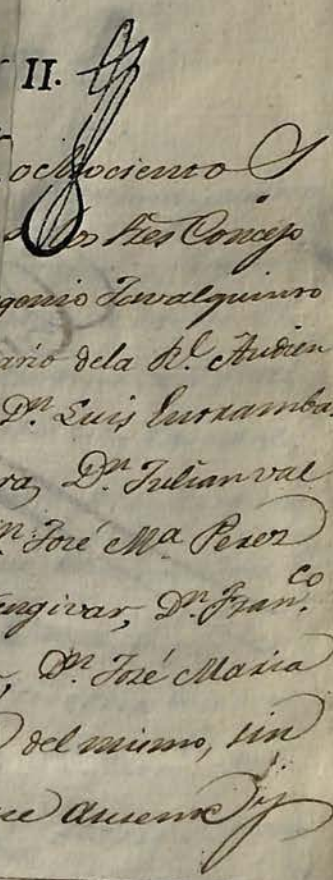 II.
ochocientos
los tres Concejo
genio Tavalquinto
ario dela Rl. Audien
Dn. Luis Entramba
ra, Dn. Julian val
n. José Ma Perez
engivar, Dn. Franco.
, Dn. José Maria
del mismo, sin
ausente y